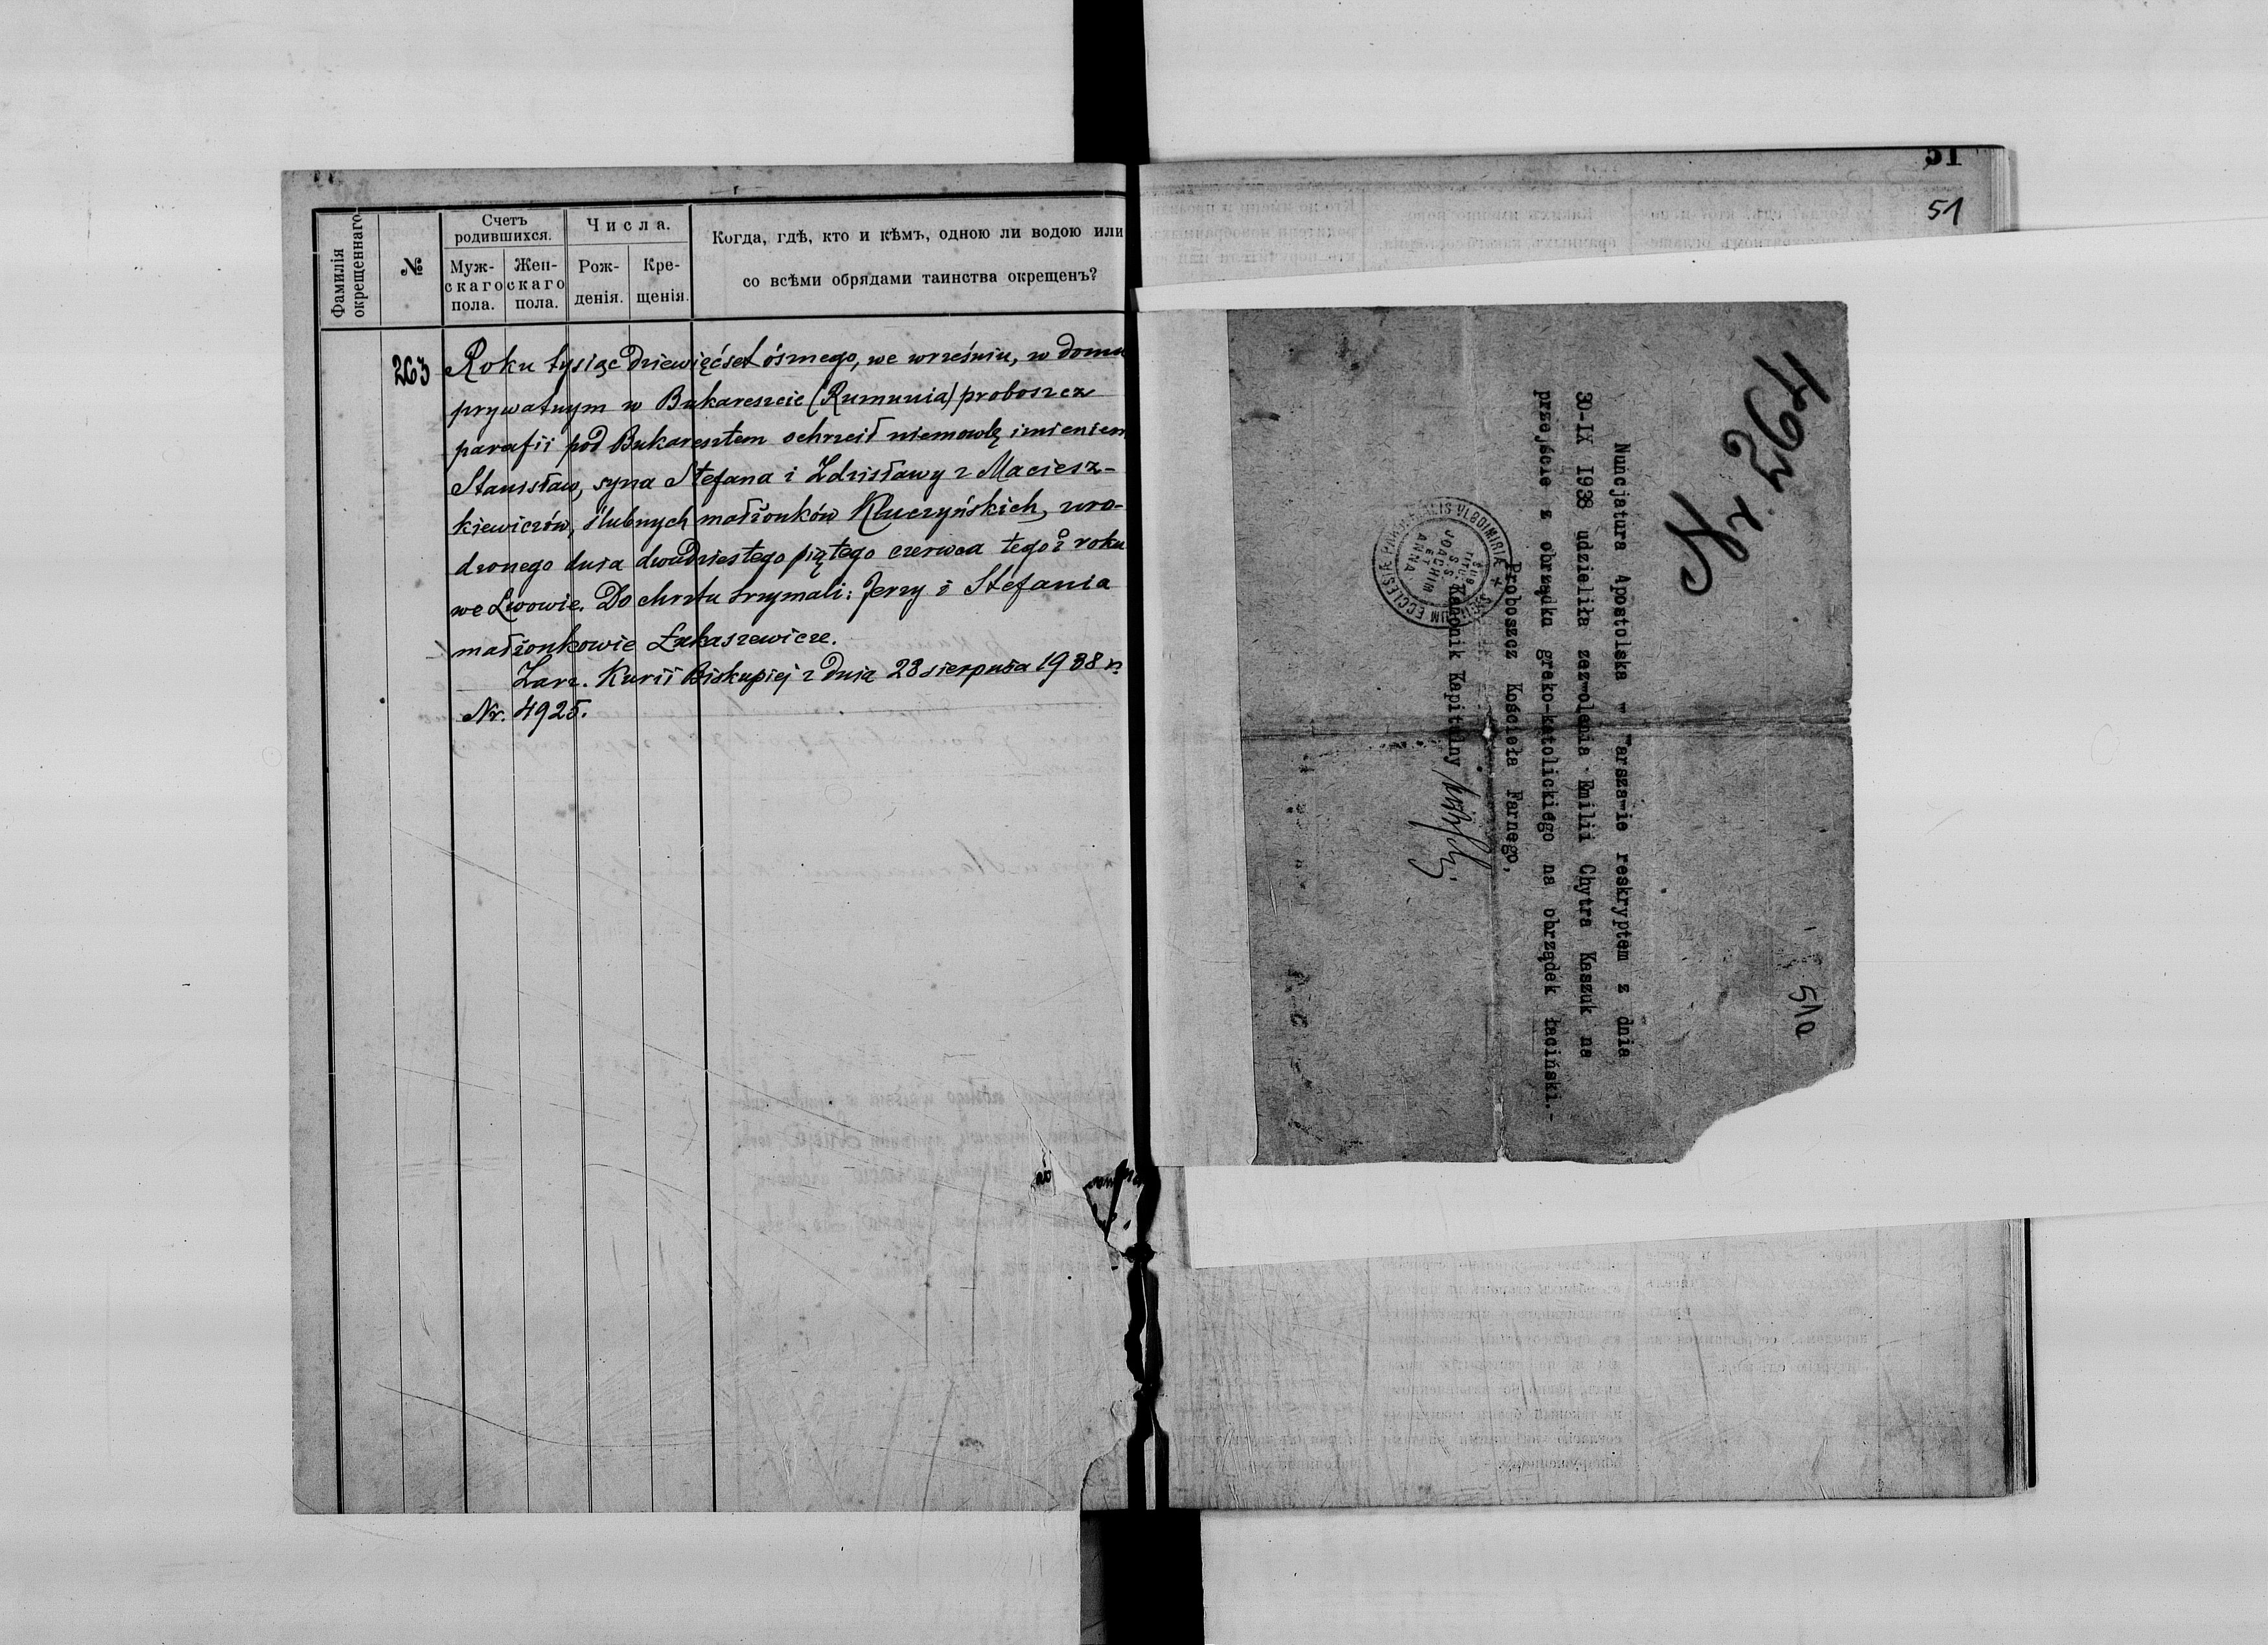 Фамилія окрещеннаго
№
Счетъ родившихся.
Муж-
скаго
пола.
Жен-
скаго
пола.
Числа.
Рож-
денія.
Кре-
щенія.
Когда, гдѣ, кто и кѣмъ, одною ли водою или
со всѣми обрядами таинства окрещенъ?
263
Roku tysiąc dziewięćset ósmego, we wrześniu, w domu
prywatnym w Bukareszcie (Rumunia) proboszcz
parafii pod Bukaresztem ochrzcił niemowlę imieniem
Stanisław, syna Stefana i Zdzisławy z Maciesz-
kiewiczów, ślubnych małżonków Kluczyńskich, uro-
dzonego dnia dwudziestego piątego czerwca tegoż roku
we Lwowie. Do chrztu trzymali: Jerzy i Stefania
małżonkowie Łukaszewicze.
Zarz. Kurii Biskupiej z dnia 23 sierpnia 1938 r.
Nr. 4925.
51
51
Nr. 264
51a
Nuncjatura Apostolska w Warszawie reskryptem z dnia
30-IX 1938 udzieliła zezwolenia Emilii Chytra Kaszuk na
przejście z obrządku greko-katolickiego na obrządek łaciński.-
Proboszcz Kościoła Farnego,
Kanonik Kapitulny
JOACHIM
ET
ANNA